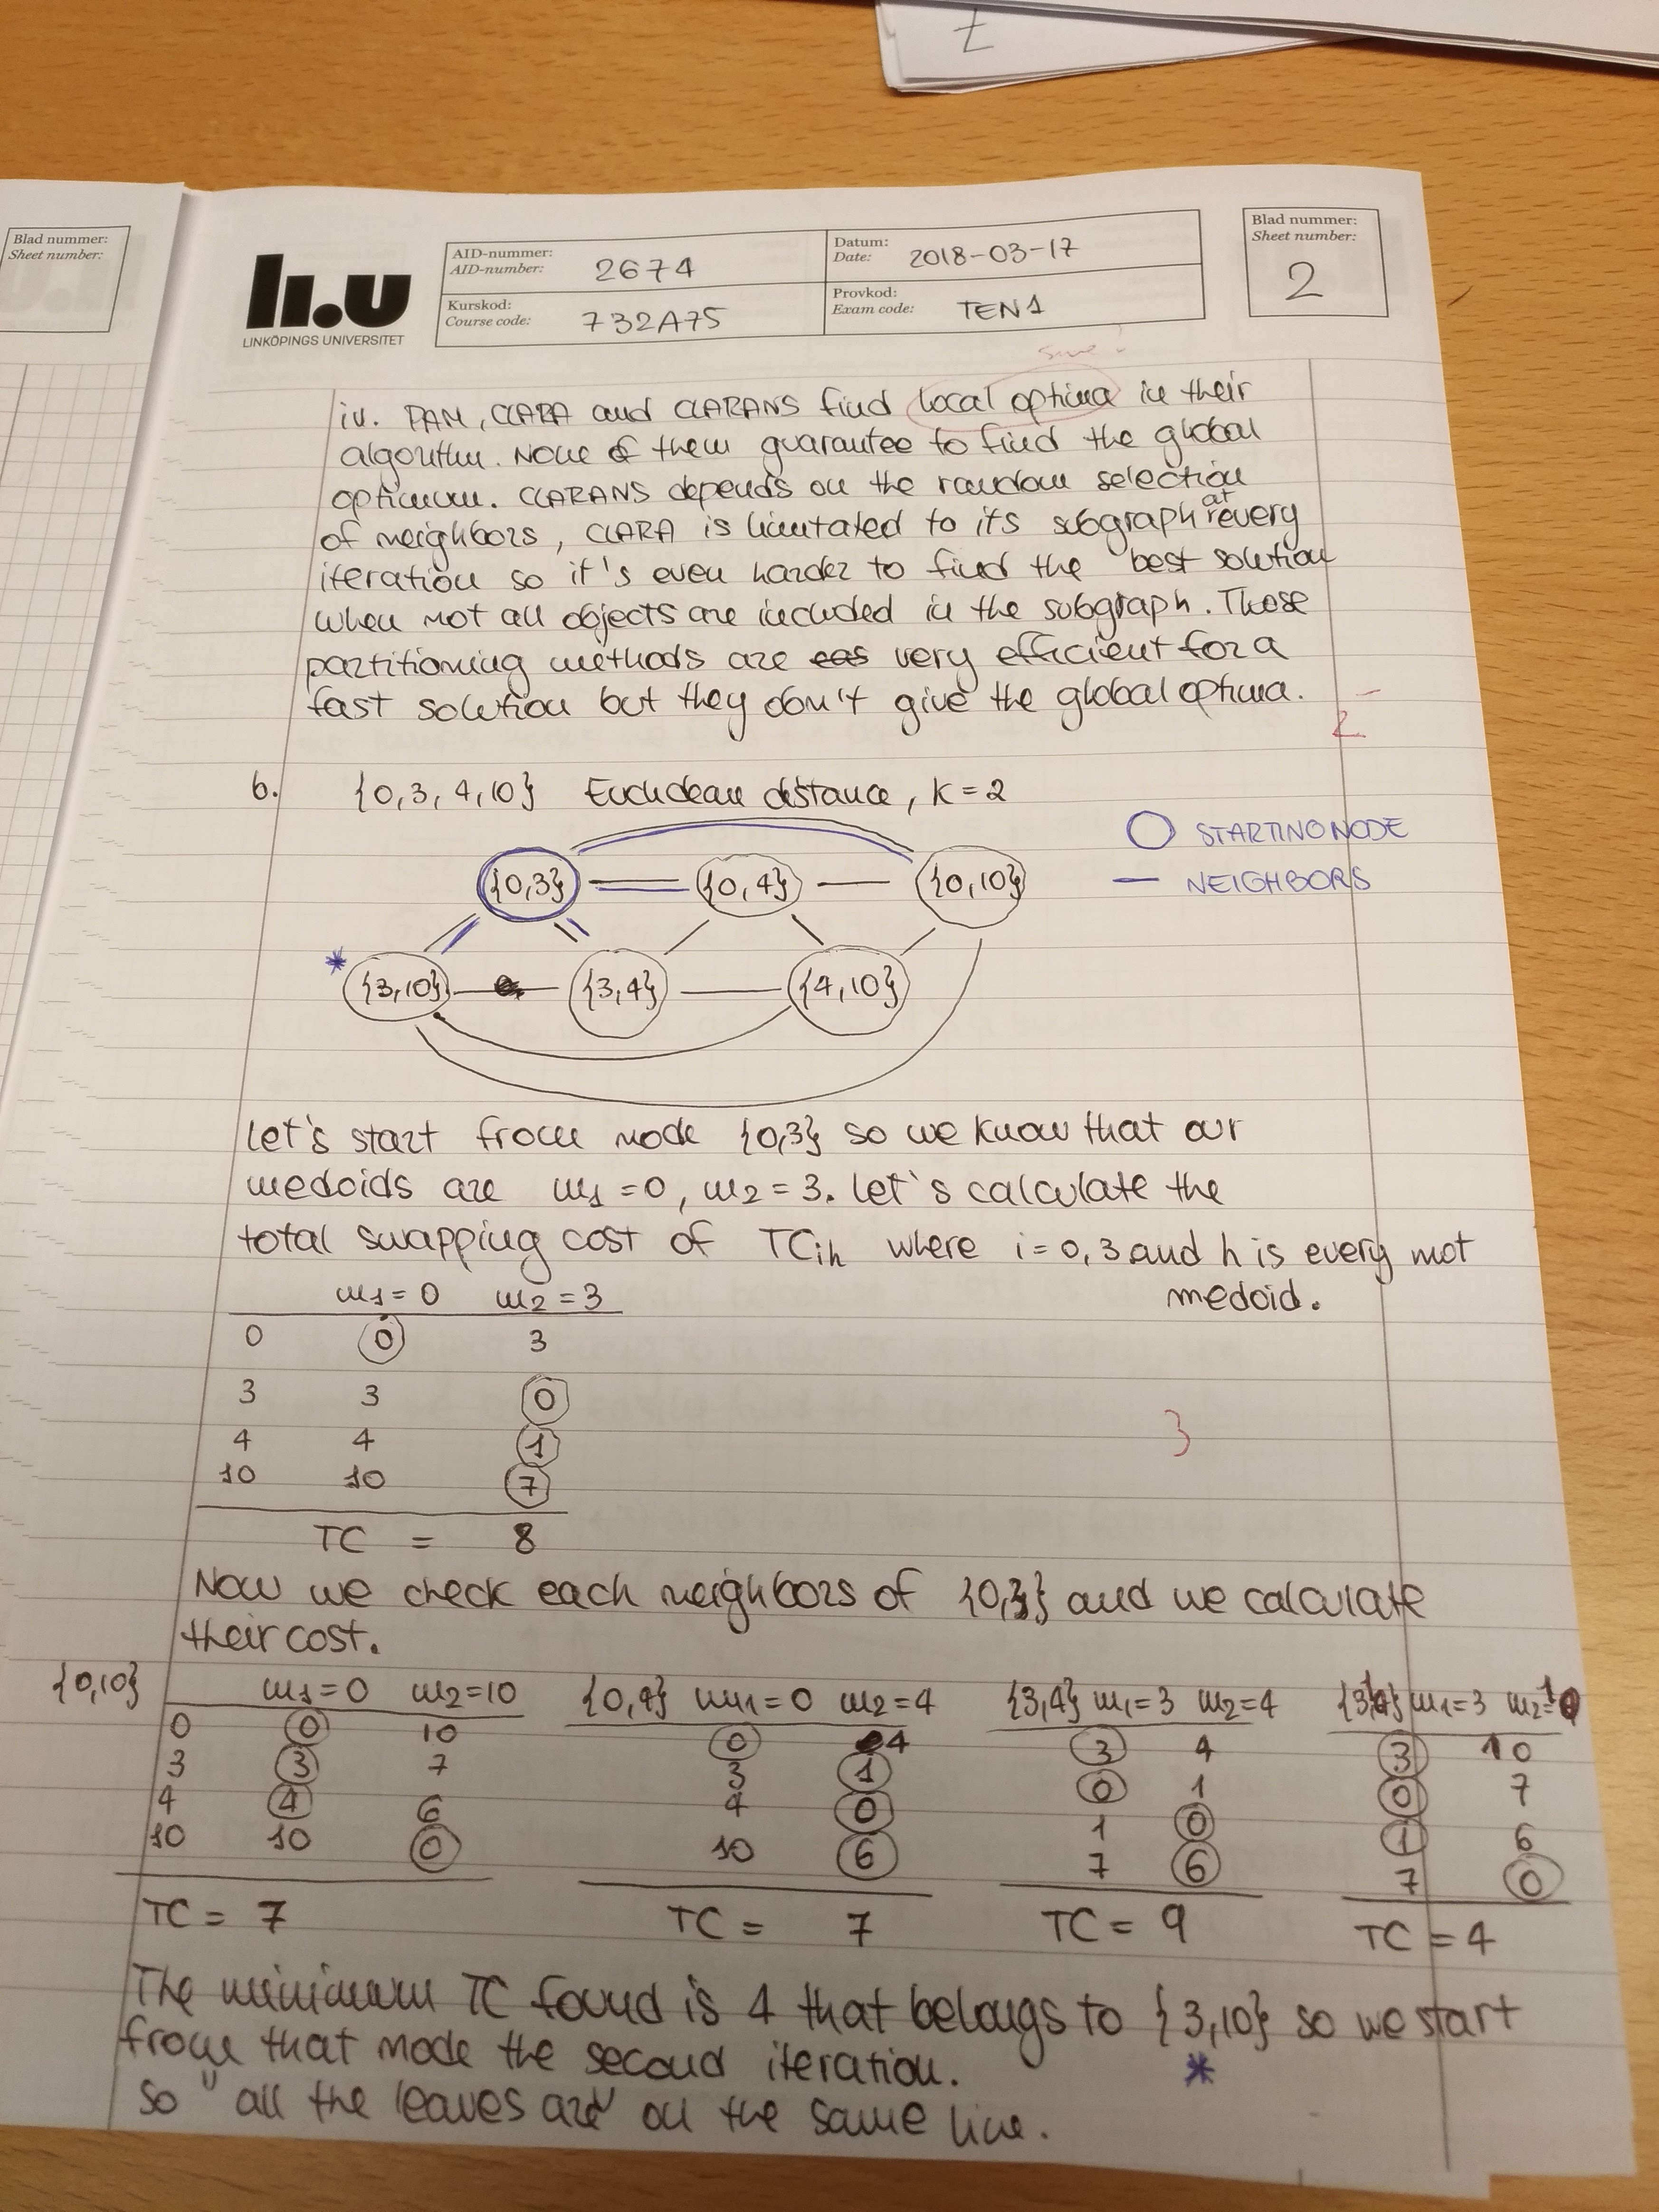 t
Blad nummer:
Sheet number:
li.u
LINKÖPINGS UNIVERSITET
AID-nummer:
AID-number: 2674
Datum:
Date: 2018-03-17
Blad nummer:
Sheet number:
2
Kurskod:
Course code: 732A75
Provkod:
Exam code: TEN1
iv. PAM, CLARA and CLARANS find local optima in their
algorithm. None of them guarantee to find the global
optimum. CLARANS depends on the random selection
of neighbors, CLARA is limitated to its subgraph at every
iteration so it's even harder to find the best solution
when not all objects are included in the subgraph. Those
partitioning methods are very efficient for a
fast solution but they don't give the global optima.
2
6. {0, 3, 4, 10} Euclidean distance, K = 2
STARTING NODE
NEIGHBORS
{0,3} {0,4} {0,10}
* {3,10} {3,4} {4,10}
Let's start from node {0,3} so we know that our
medoids are m1 = 0, m2 = 3. Let's calculate the
total swapping cost of TCih where i = 0, 3 and h is every not
medoid.
m1 = 0 m2 = 3
0 0 3
3 3 0
4 4 1
10 10 7
TC = 8
3
Now we check each neighbors of {0,3} and we calculate
their cost.
{0,10} m1=0 m2=10 {0,4} m1=0 m2=4 {3,4} m1=3 m2=4 {3,10} m1=3 m2=10
0 0 10 0 4 3 4 3 10
3 3 7 3 1 0 1 0 7
4 4 6 4 0 1 0 1 6
10 10 0 10 6 7 6 7 0
TC = 7 TC = 7 TC = 9 TC = 4
The minimum TC found is 4 that belongs to {3,10} so we start
from that node the second iteration. *
So "all the leaves are" on the same line.